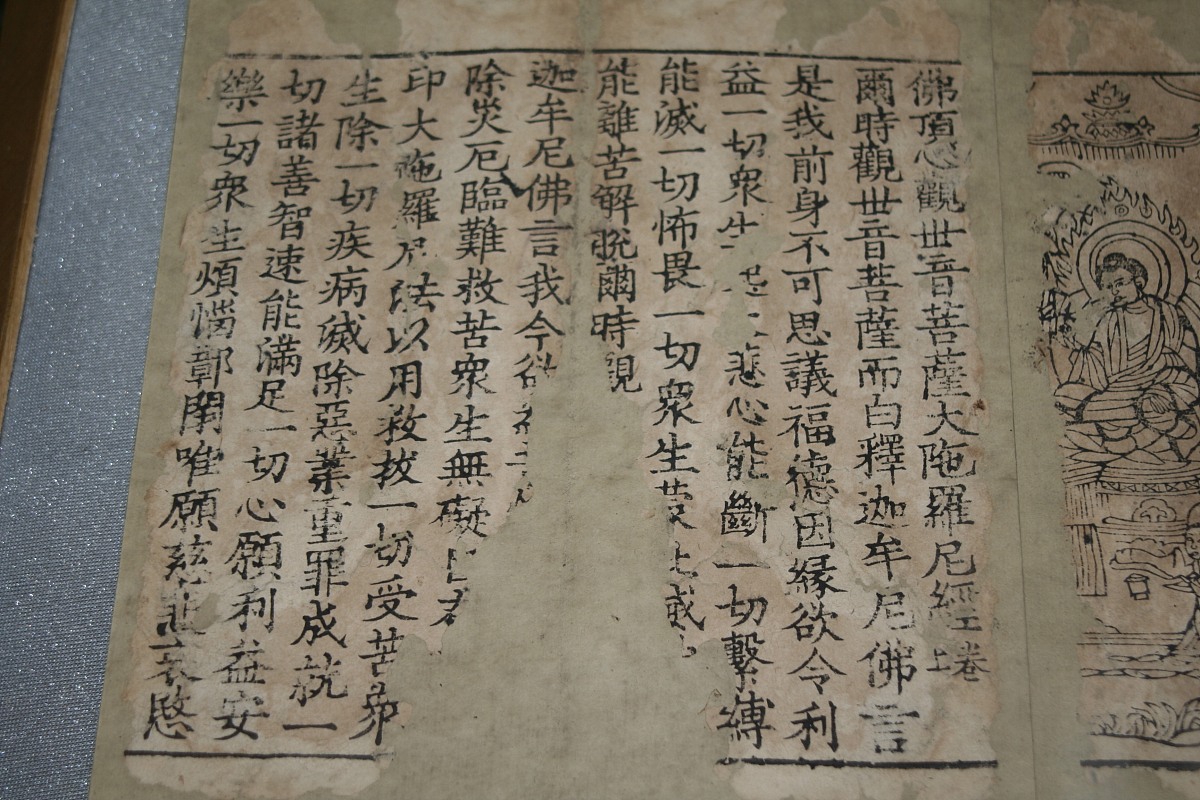 佛頂心觀世音菩薩大陁羅尼經上卷
爾時觀世音菩薩而白釋迦牟尼佛言
是我前身不可思議福德因縁欲令利
益一切衆生起悲心能斷一切繫縛
能滅一切怖畏一切衆生蒙此威
能離苦解脫爾時觀
迦牟尼佛言我今欲
除災厄臨難救苦衆生無礙
印大陁羅尼法以用救拔一切受苦衆
生除一切疾病滅除惡業重罪成就一
切諸善智速能滿足一切心願利益安
樂一切衆生煩惱鄣閡唯願慈悲哀愍